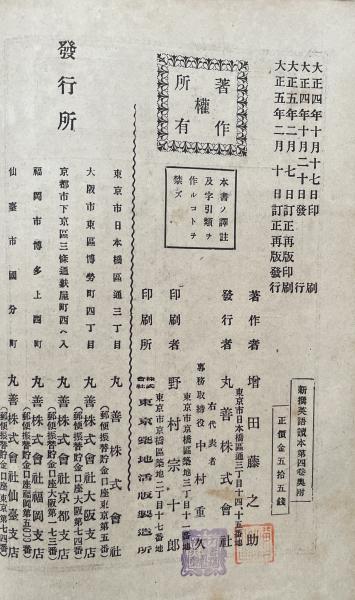 新撰英語讀本第四卷奥附
正價金五拾五錢
大正四年十月十七日印刷
大正四年十月二十日發行
大正五年二月七日訂正再版印刷
大正五年二月十日訂正再版發行
著作
權
所有
本書ノ譯註
及字引類ヲ
作ルコトヲ
禁ズ
著作者 增田藤之助
東京市日本橋區通三丁目十四、十五番地
發行者 丸善株式會社
右代表者
專務取締役 中村重久
東京市京橋區築地三丁目十一番地
印刷者 野村宗十郎
東京市京橋區築地二丁目十七番地
印刷所 株式會社 東京築地活版製造所
發行所
東京市日本橋區通三丁目 丸善株式會社
（郵便振替貯金口座東京第五番）
大阪市東區博勞町四丁目 丸善株式會社大阪支店
（郵便振替貯金口座大阪第七四番）
京都市下京區三條通麩屋町西ヘ入 丸善株式會社京都支店
（郵便振替貯金口座大阪第一七三番）
福岡市博多上西町 丸善株式會社福岡支店
（郵便振替貯金口座福岡第五〇〇〇番）
仙臺市國分町 丸善株式會社仙臺支店
（郵便振替貯金口座東京第七四番）